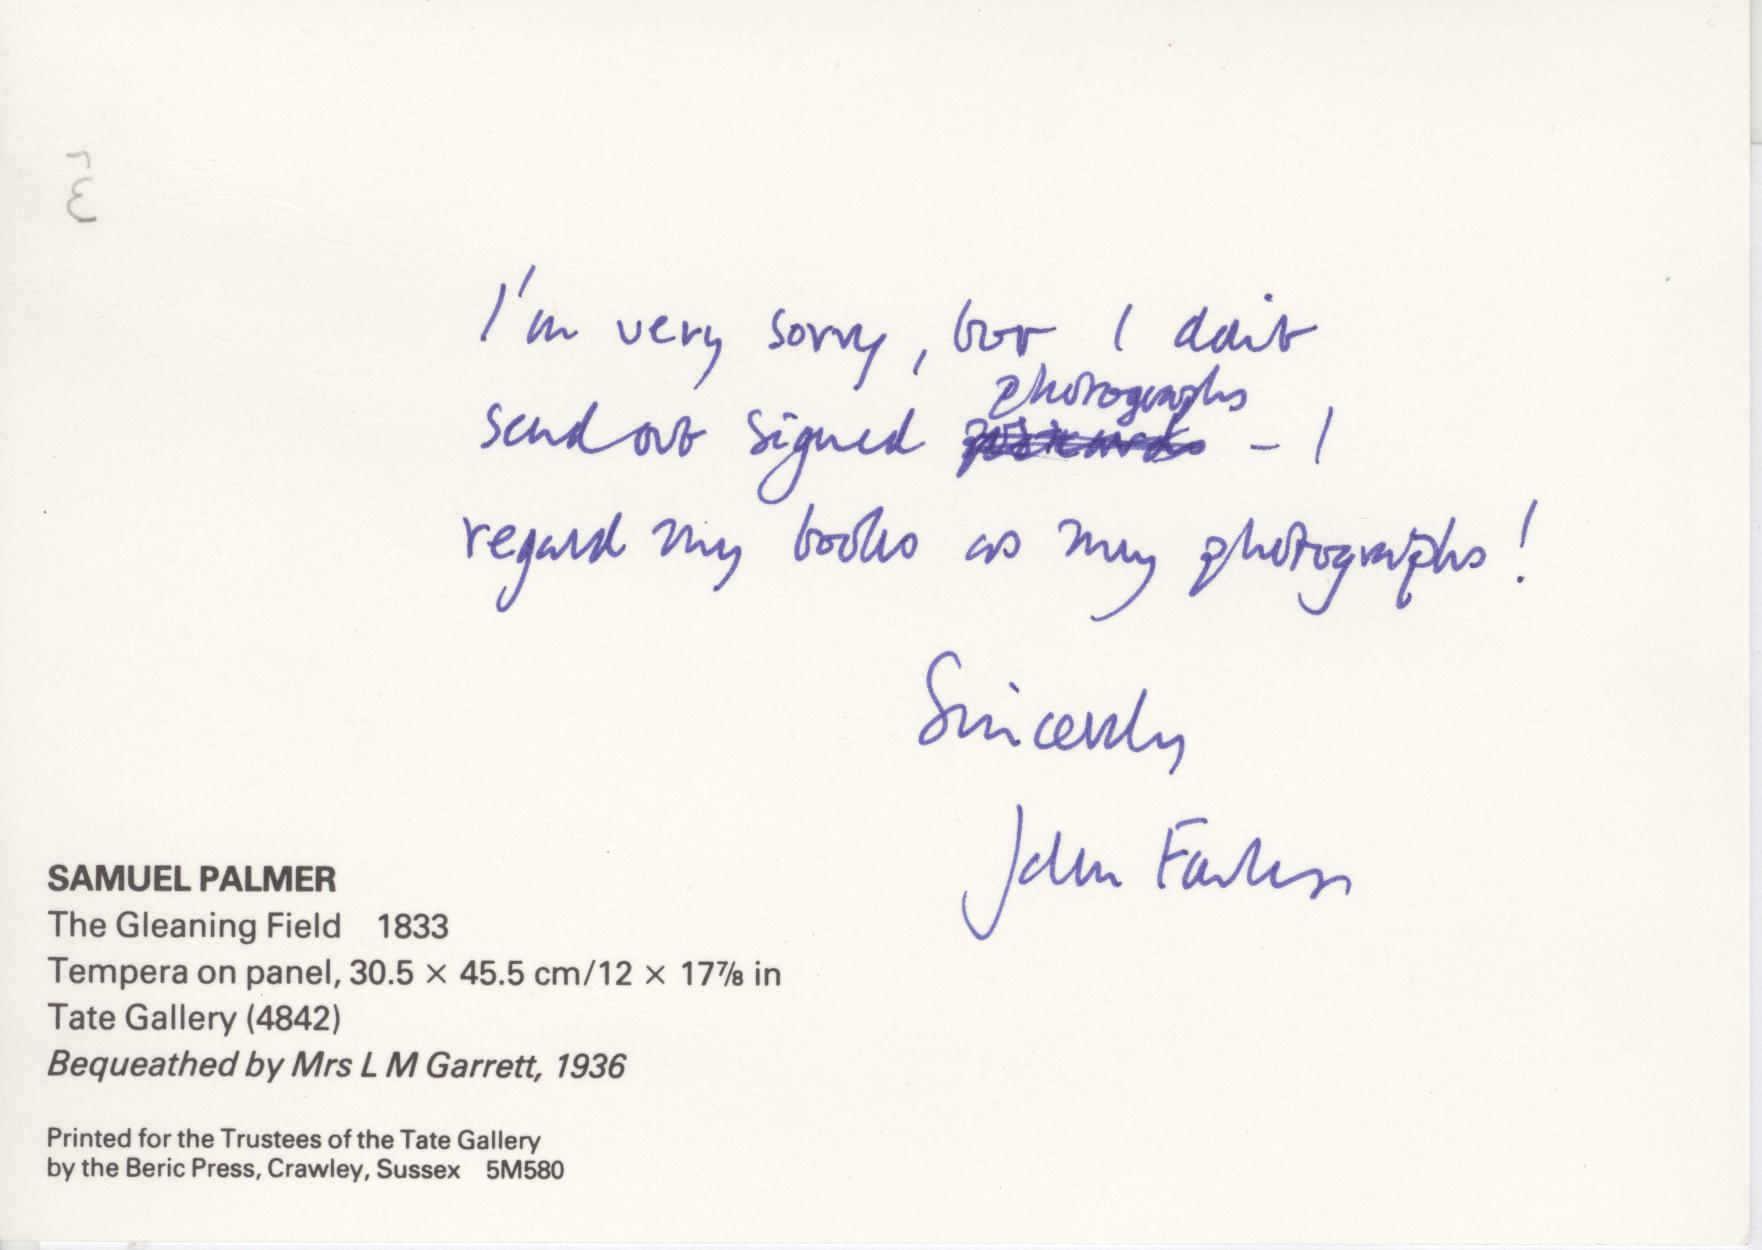 I'm very sorry, but I don't
send out signed photographs – I
regard my books as my photographs!
Sincerely
John Fowles
SAMUEL PALMER
The Gleaning Field 1833
Tempera on panel, 30.5 × 45.5 cm/12 × 17⅞ in
Tate Gallery (4842)
Bequeathed by Mrs L M Garrett, 1936
Printed for the Trustees of the Tate Gallery
by the Beric Press, Crawley, Sussex 5M580